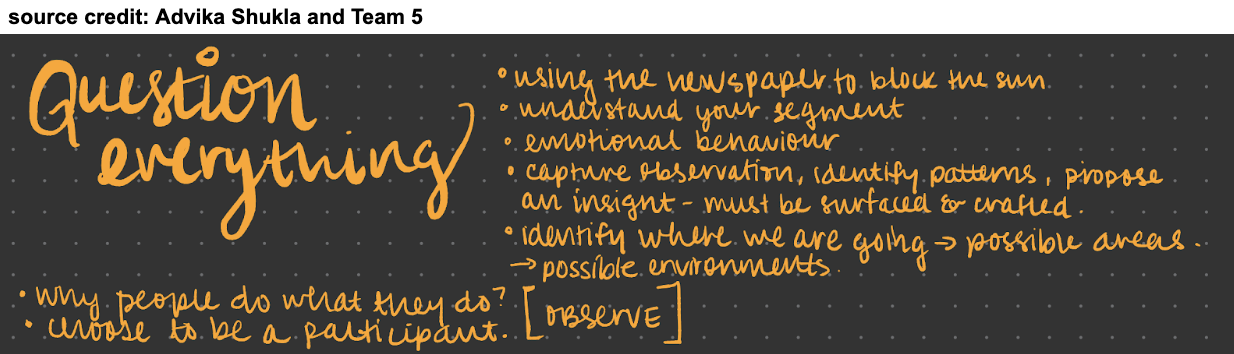 source credit: Advika Shukla and Team 5
Question
everything
• using the newspaper to block the sun
• understand your segment
• emotional behaviour
• capture observation, identify patterns, propose
an insight - must be surfaced & crafted.
• identify where we are going → possible areas.
→ possible environments.
• why people do what they do?
• choose to be a participant.
[OBSERVE]